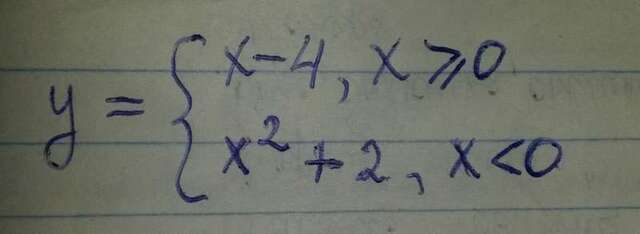 y = { x-4, x ⩾ 0
x² + 2, x < 0